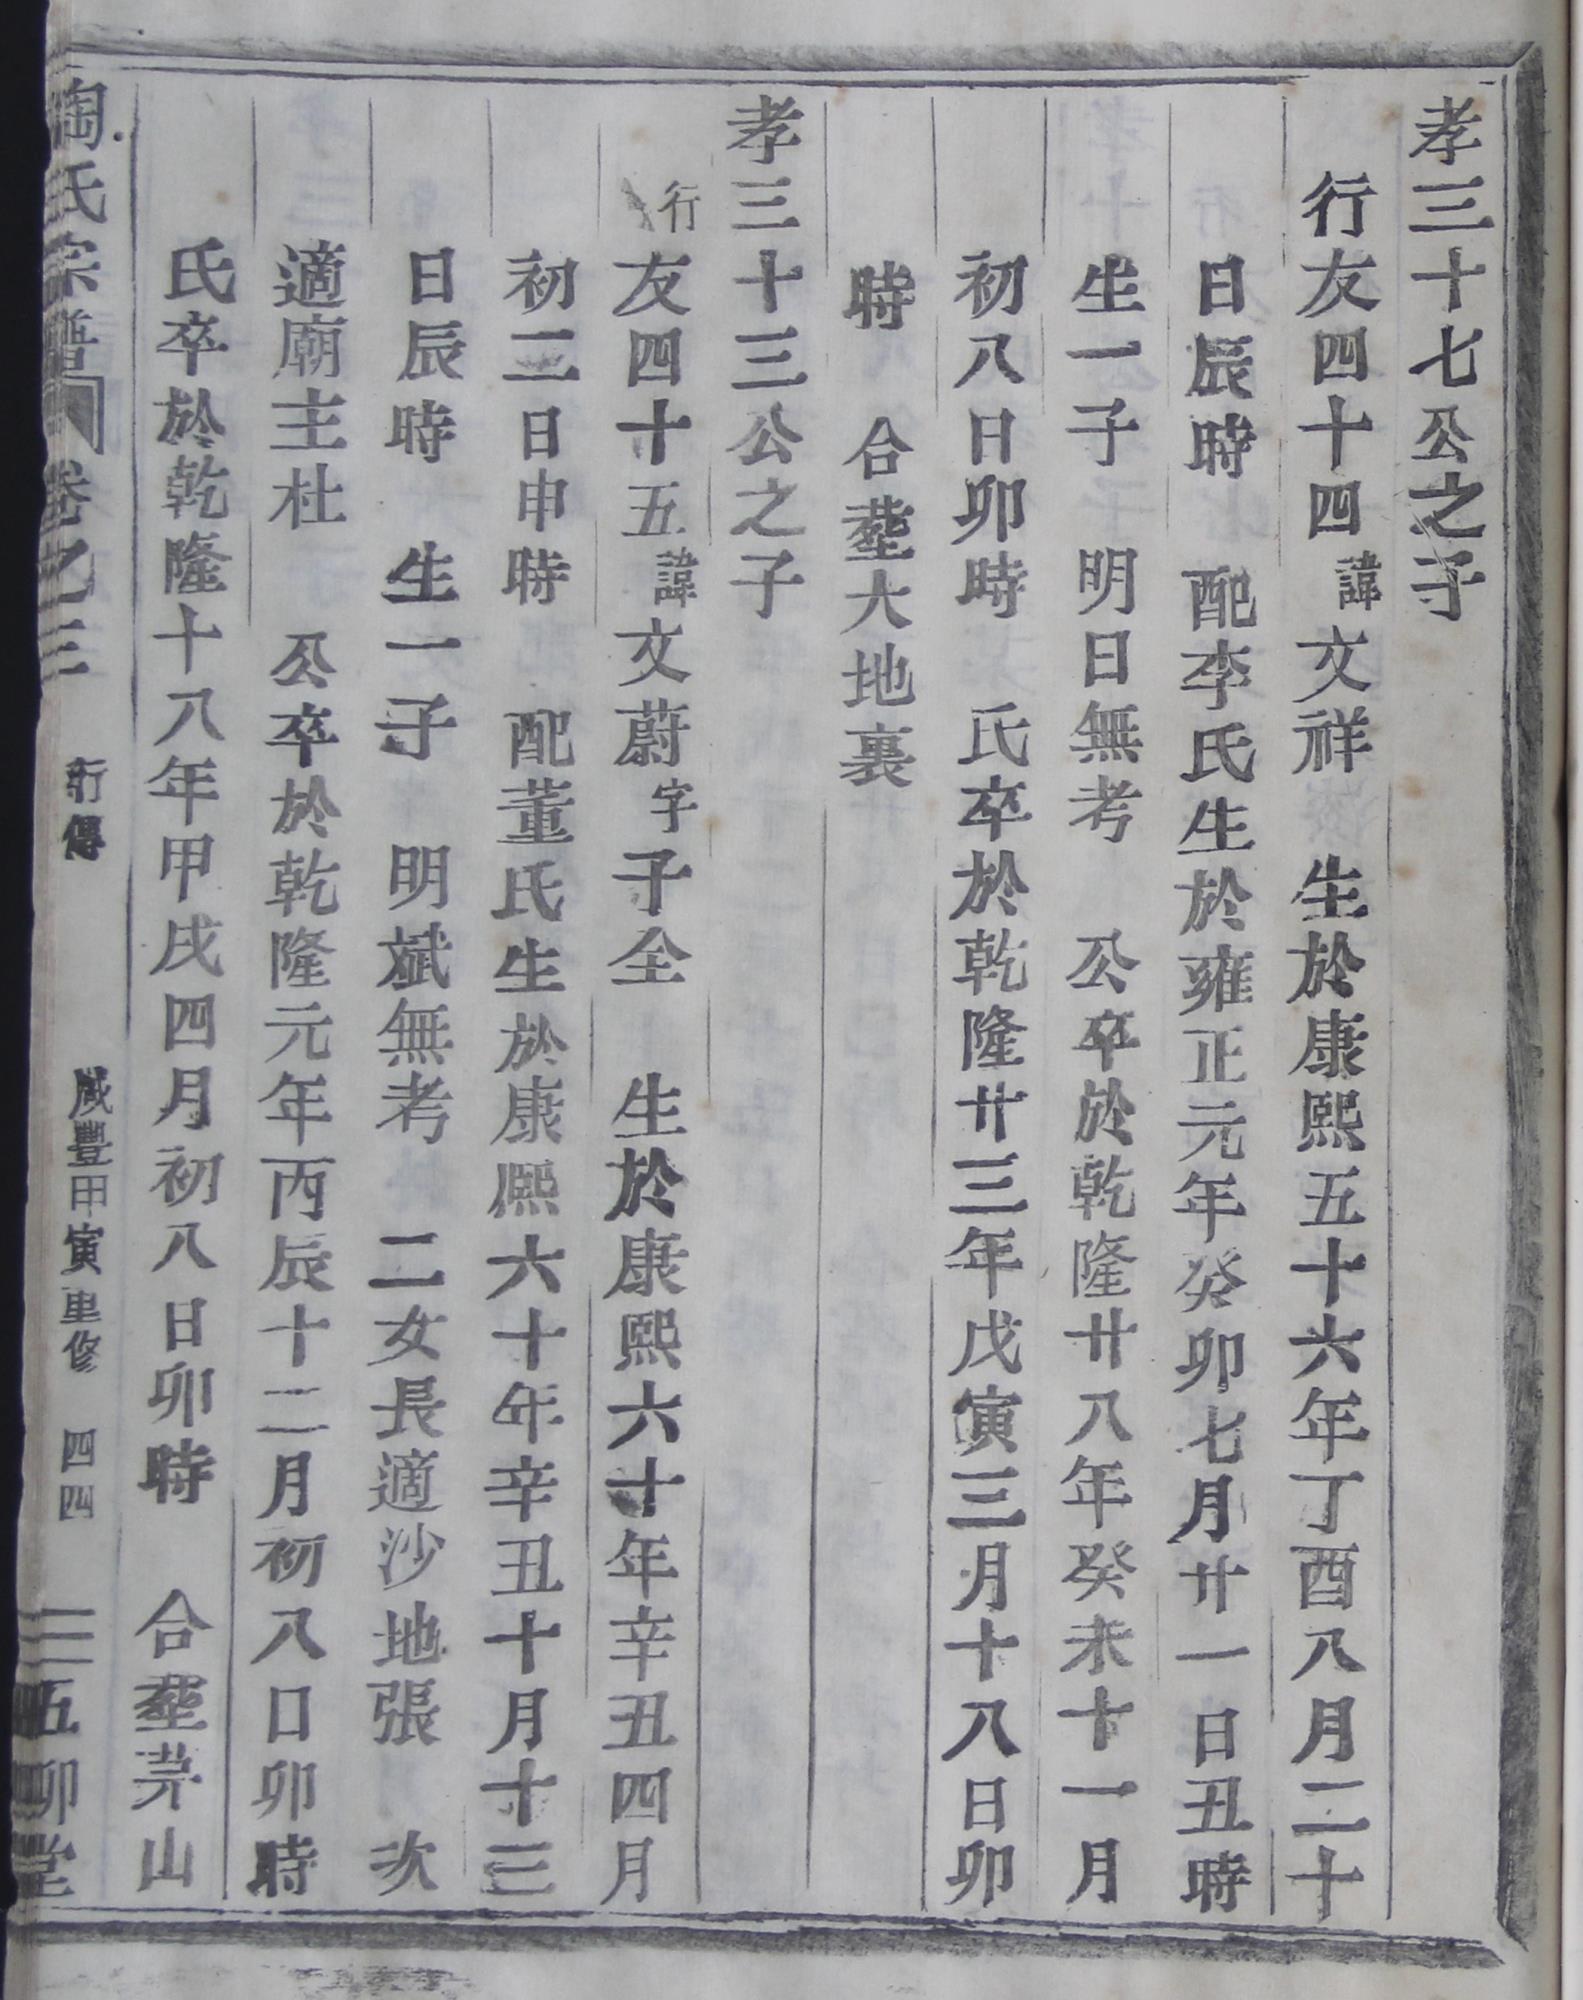 孝三十七公之子
行友四十四諱文祥 生於康熙五十六年丁酉八月二十
日辰時 配李氏生於雍正元年癸卯七月廿一日丑時
生一子 明日無考 公卒於乾隆廿八年癸未十一月
初八日卯時 氏卒於乾隆廿三年戊寅三月十八日卯
時 合塟大地裏
孝三十三公之子
行友四十五諱文蔚字子全 生於康熙六十年辛丑四月
初二日申時 配董氏生於康熙六十年辛丑十月十三
日辰時 生一子 明斌無考 二女長適沙地張 次
適廟主杜 公卒於乾隆元年丙辰十二月初八日卯時
氏卒於乾隆十八年甲戌四月初八日卯時 合塟茅山
陶氏宗譜 卷之三 行傳 咸豐甲寅重修 四四 五柳堂